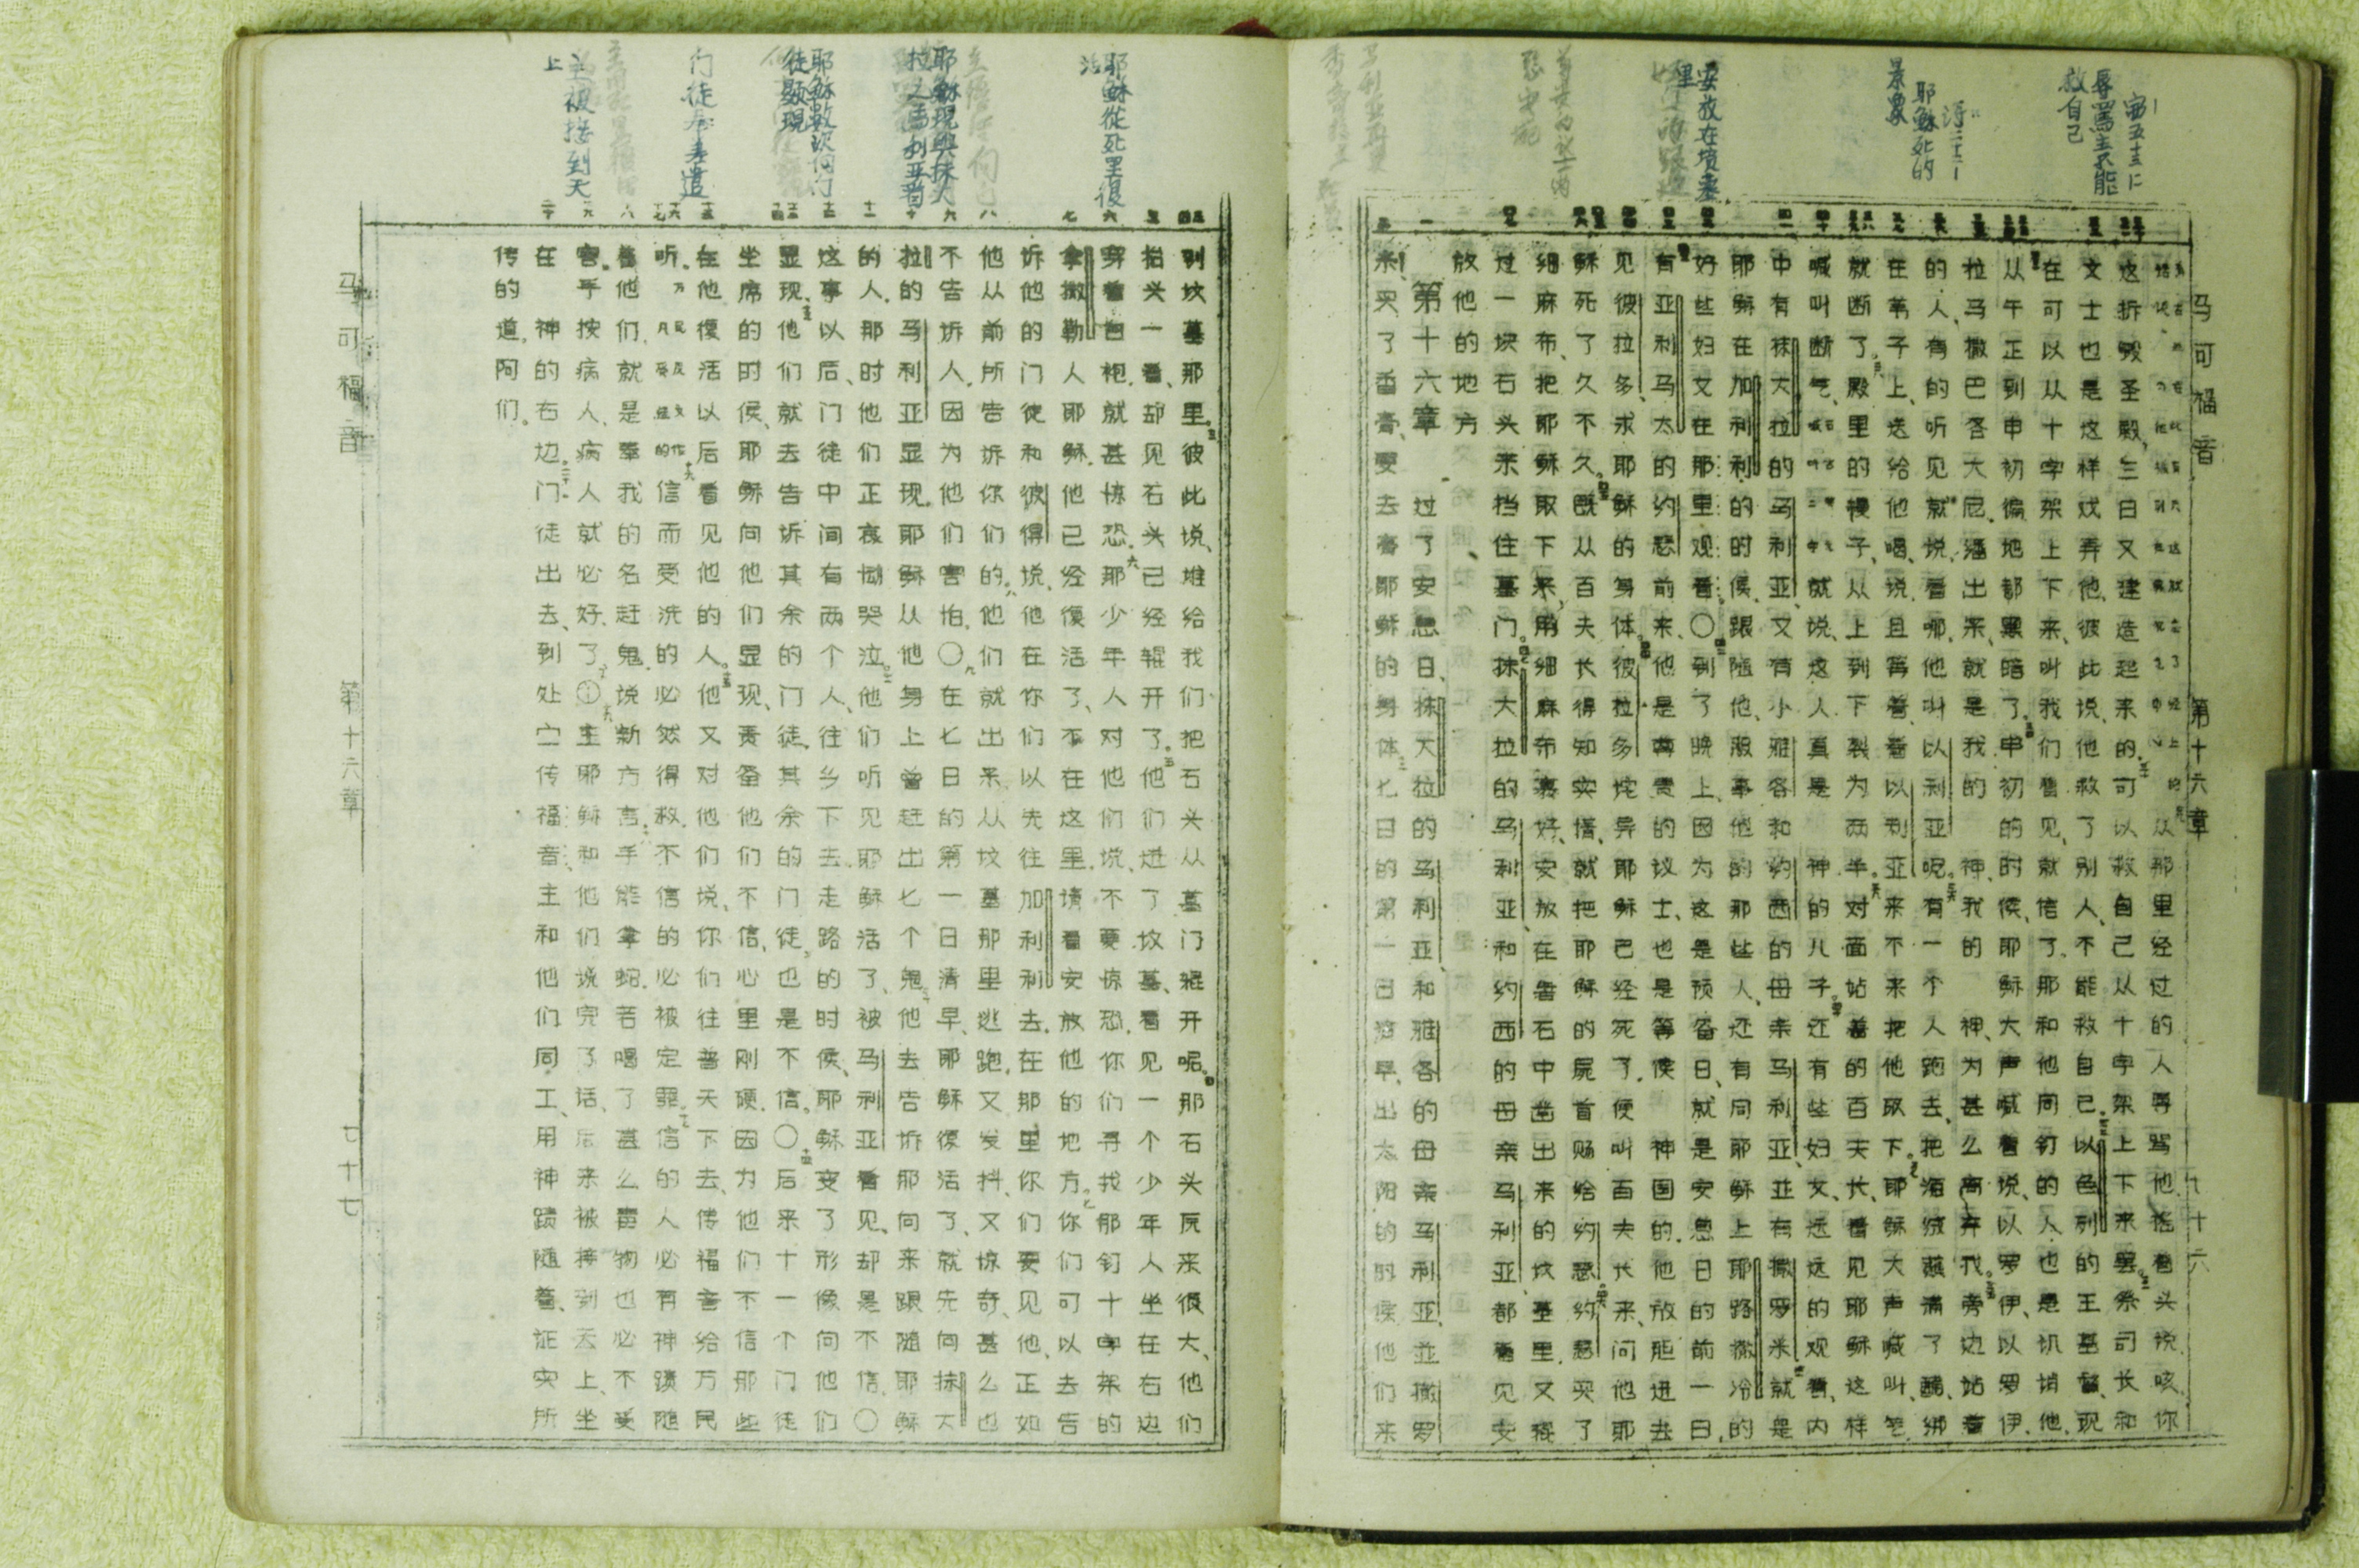 宙五十三
辱骂主不能
救自己
诗二十二
耶稣死的
景象
安放在坟墓
里
马可福音　第十六章
从那里经过的人辱骂他摇着头说咳你
这拆毁圣殿、三日又建造起来的可以救自己从十字架上下来罢祭司长和
文士也是这样戏弄他、彼此说、他救了别人、不能救自己以色列的王基督现
在可以从十字架上下来、叫我们看见就信了那和他同钉的人也是讥诮他、
从午正到申初徧地都黑暗了申初的时候、耶稣大声喊着说、以罗伊、以罗伊、
拉马撒巴各大尼繙出来就是我的神、我的神、为甚么离弃我旁边站着
的人、有的听见就说、看哪、他叫以利亚呢有一个人跑去、把海绒蘸满了醋、绑
在苇子上、送给他喝、说、且等着看以利亚来不来把他取下、耶稣大声喊叫、气
就断了殿里的幔子、从上到下裂为两半对面站着的百夫长、看见耶稣这样
喊叫断气、就说、这人真是神的儿子还有些妇女、远远的观看、内
中有抹大拉的马利亚、又有小雅各和约西的母亲马利亚、並有撒罗米就是
耶稣在加利利的时候、跟随他、服事他的那些人、还有同耶稣上耶路撒冷的
好些妇女在那里观看〇到了晚上、因为这是预备日、就是安息日的前一日、
有亚利马太的约瑟前来、他是尊贵的议士、也是等候神国的他放胆进去
见彼拉多、求耶稣的身体彼拉多诧异耶稣已经死了便叫百夫长来问他耶
稣死了久不久既从百夫长得知实情、就把耶稣的尸首赐给约瑟约瑟买了
细麻布、把耶稣取下来、用细麻布裹好、安放在磐石中凿出来的坟墓里、又辊
过一块石头来挡住墓门抹大拉的马利亚、和约西的母亲马利亚、都看见安
放他的地方
第十六章　过了安息日、抹大拉的马利亚、和雅各的母亲马利亚、並撒罗
米、买了香膏、要去膏耶稣的身体七日的第一日清早、出太阳的时候他们来
耶稣從死里復
活
耶穌現與抹大
拉之馬利亚看
耶稣數次向门
徒顯現
主被接到天
上
到坟墓那里彼此说、谁给我们把石头从墓门辊开呢那石头原来很大、他们
抬头一看、却见石头已经辊开了他们进了坟墓、看见一个少年人坐在右边
穿着白袍就甚惊恐那少年人对他们说、不要惊恐、你们寻找那钉十字架的
拿撒勒人耶稣他已经復活了、不在这里、请看安放他的地方你们可以去告
诉他的门徒和彼得说、他在你们以先往加利利去、在那里你们要见他、正如
他从前所告诉你们的他们就出来、从坟墓那里逃跑、又发抖、又惊奇、甚么也
不告诉人、因为他们害怕〇在七日的第一日清早、耶稣復活了、就先向抹大
拉的马利亚显现、耶稣从他身上曾赶出七个鬼他去告诉那向来跟随耶稣
的人、那时他们正哀恸哭泣他们听见耶稣活了、被马利亚看见、却是不信〇
这事以后、门徒中间有两个人、往乡下去走路的时候、耶稣变了形像向他们
显现他们就去告诉其余的门徒、其余的门徒、也是不信〇后来十一个门徒
坐席的时候、耶稣向他们显现、责备他们不信、心里刚硬、因为他们不信那些
在他復活以后看见他的人他又对他们说、你们往普天下去、传福音给万民
听信而受洗的必然得救、不信的必被定罪信的人必有神蹟随
着他们、就是奉我的名赶鬼、说新方言手能拿蛇、若喝了甚么毒物也必不受
害手按病人、病人就必好了①主耶稣和他们说完了话、后来被接到天上、坐
在神的右边门徒出去、到处宣传福音、主和他们同工、用神蹟随着、证实所
传的道阿们
马可福音　第十六章　七十七